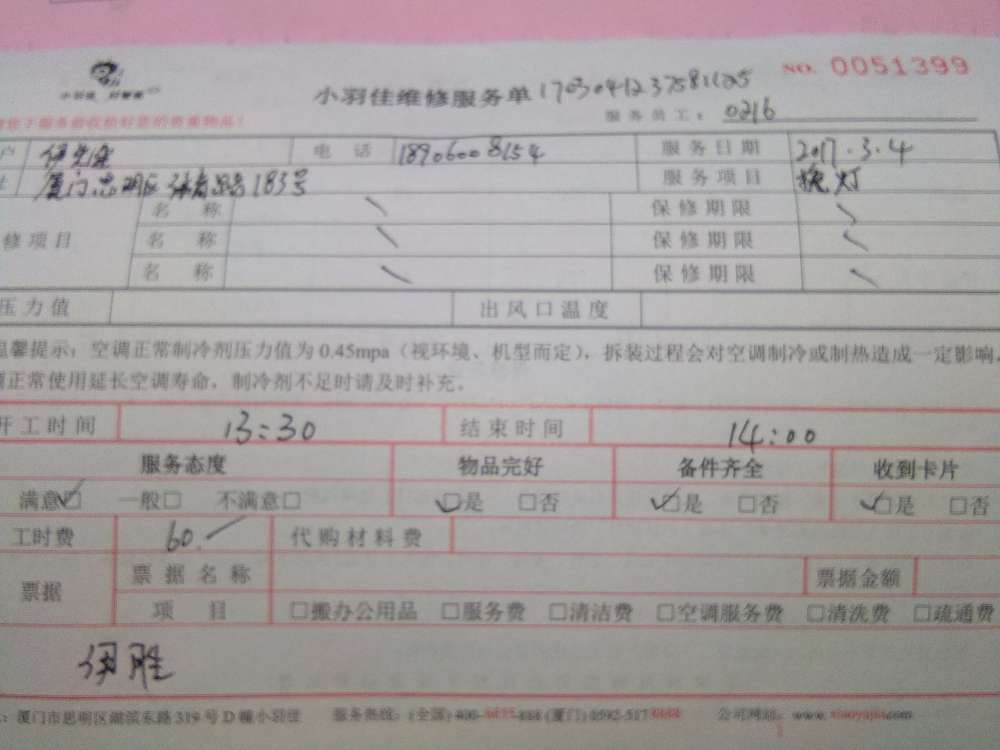 NO. 0051399
小羽佳维修服务单 1703041237581125
服务员工: 0216
户 伊先生 电话 18906008154 服务日期 2017.3.4
址 厦门思明区体育路183号 服务项目 换灯
名称 保修期限
修项目 名称 保修期限
名称 保修期限
压力值 出风口温度
温馨提示: 空调正常制冷剂压力值为0.45mpa（视环境、机型而定），拆装过程会对空调制冷或制热造成一定影响，
正常使用延长空调寿命，制冷剂不足时请及时补充。
开工时间 13:30 结束时间 14:00
服务态度 物品完好 备件齐全 收到卡片
满意☑ 一般□ 不满意□ ☑是 □否 ☑是 □否 ☑是 □否
工时费 60. 代购材料费
票据名称 票据金额
票据
项目 □搬办公用品 □服务费 □清洁费 □空调服务费 □清洗费 □疏通费
伊胜
: 厦门市思明区湖滨东路319号D幢小羽佳 服务热线: (全国) 400- -888 (厦门) 0592-517 公司网站: www.xiaoyujia.com